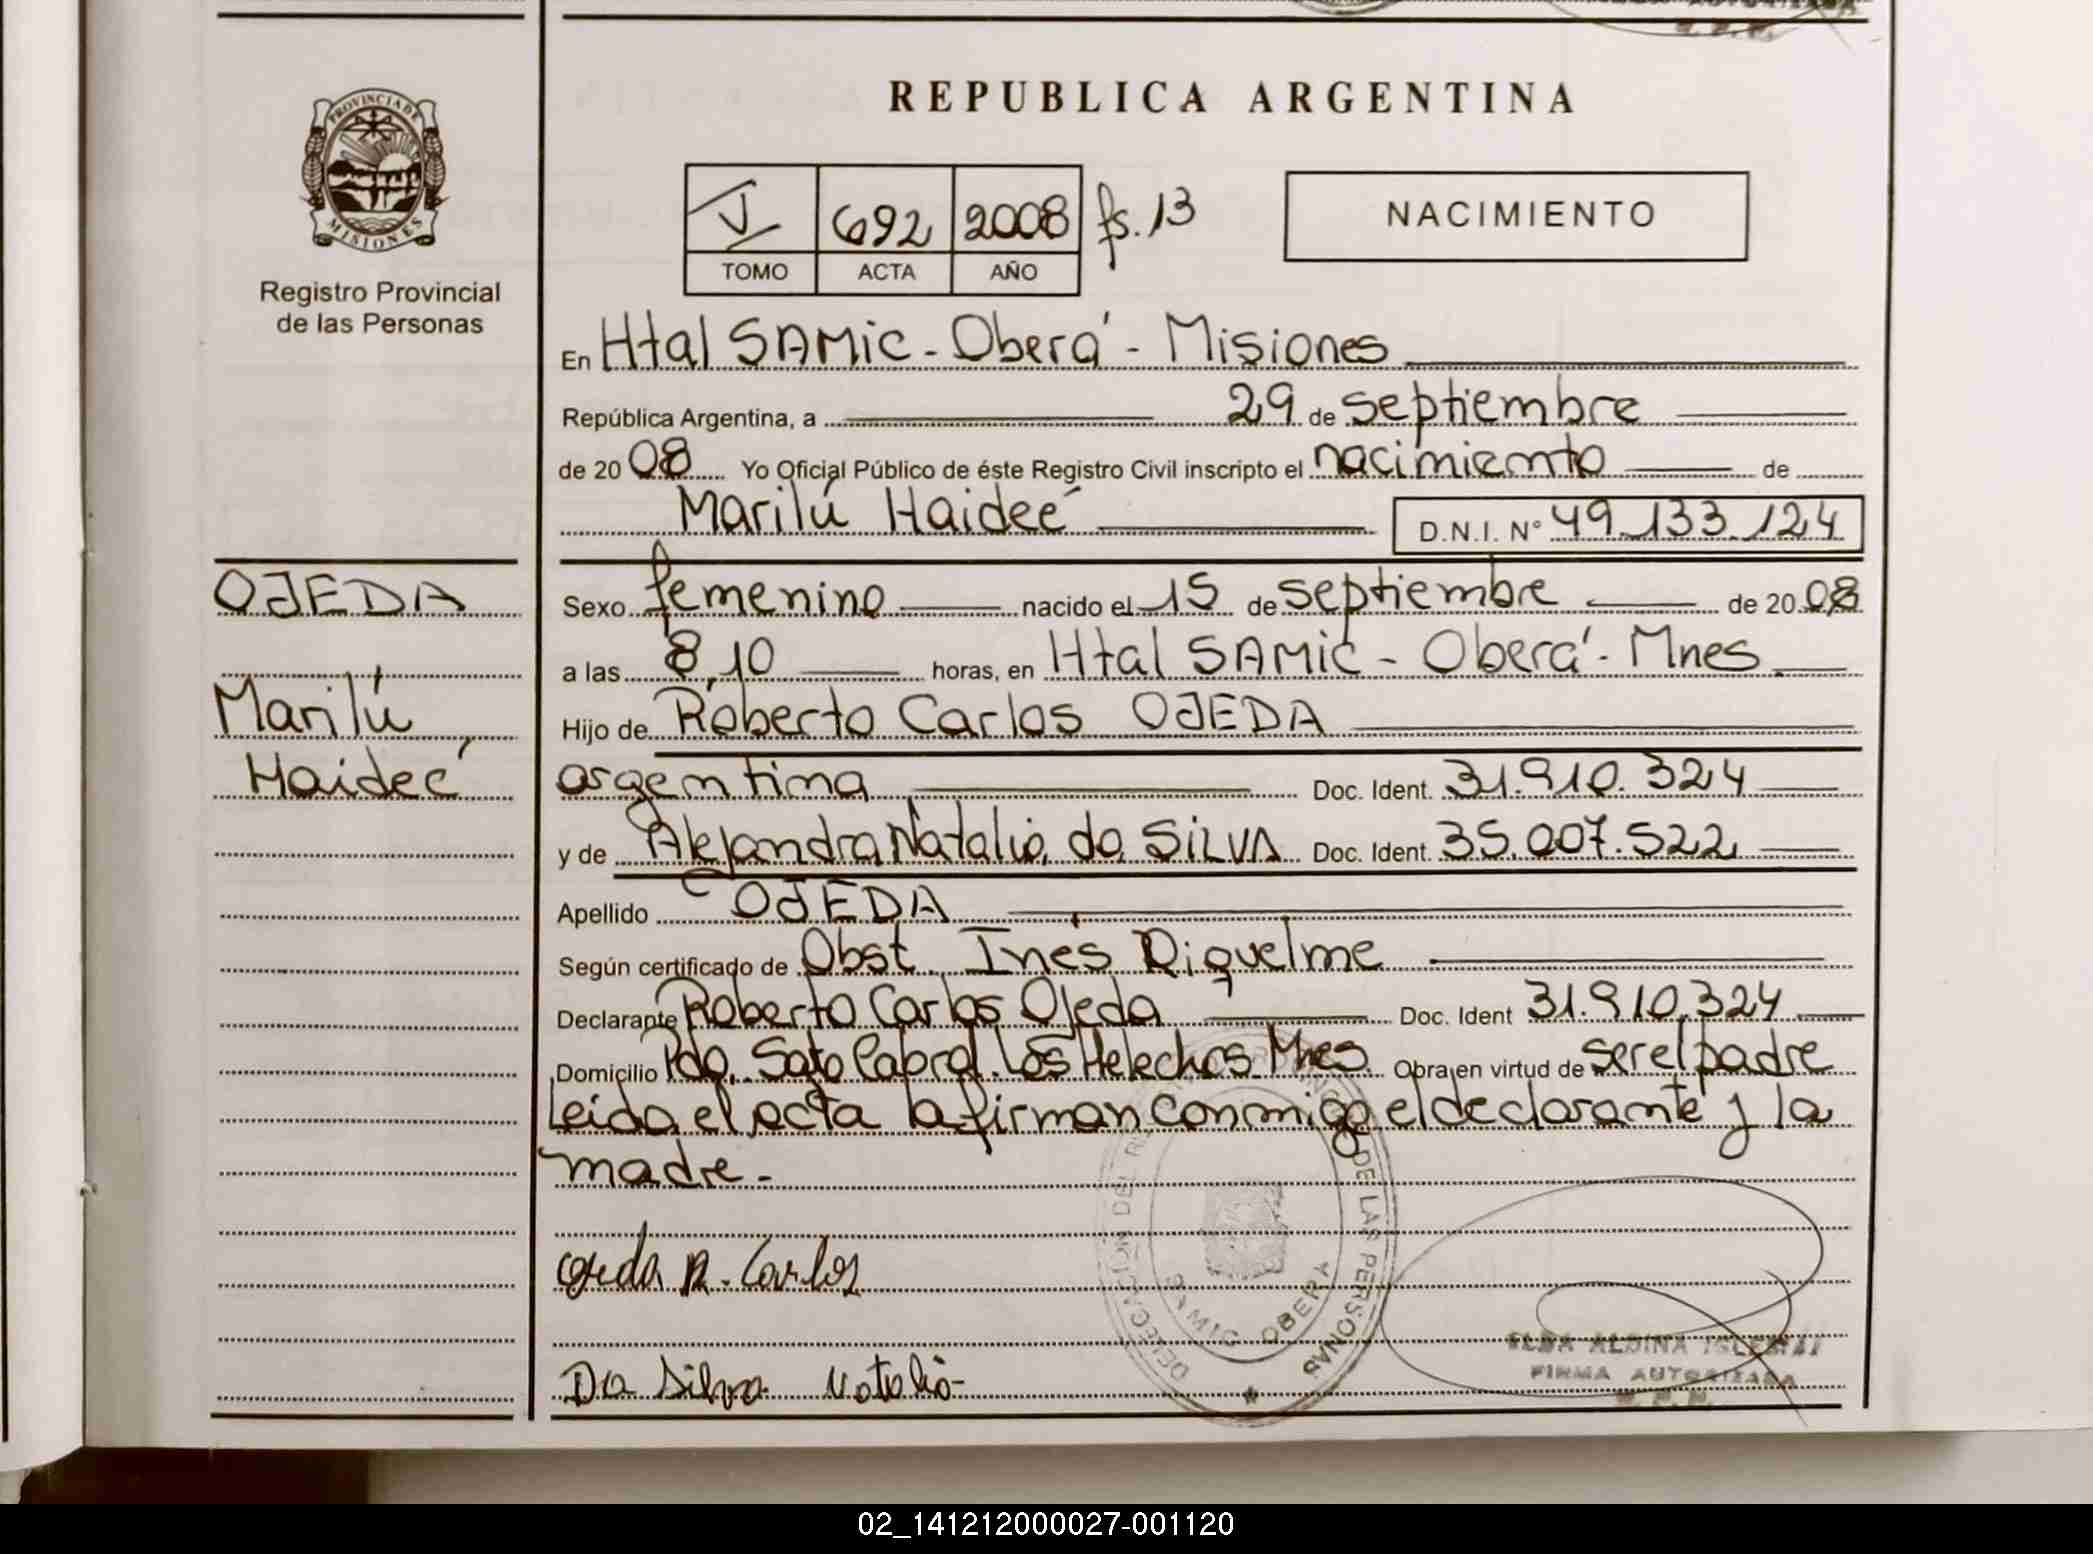 REPUBLICA ARGENTINA
PROVINCIA DE
MISIONES
Registro Provincial
de las Personas
V 692 2008 fs. 13
TOMO ACTA AÑO
NACIMIENTO
En Htal SAMiC - Oberá - Misiones
República Argentina, a 29 de septiembre
de 2008 Yo Oficial Público de éste Registro Civil inscripto el nacimiento de
Marilú Haideé D.N.I. N° 49.133.124
OJEDA
Marilú
Haideé
Sexo femenino nacido el 15 de septiembre de 2008
a las 8,10 horas, en Htal SAMiC - Oberá - Mnes.
Hijo de Roberto Carlos OJEDA
argentina Doc. Ident. 31.910.324
y de Alejandra Natalia da SiLVA Doc. Ident. 35.007.522
Apellido OJEDA
Según certificado de Obst. Inés Riquelme
Declarante Roberto Carlos Ojeda Doc. Ident 31.910.324
Domicilio Pdo. Sgto Cabral. Los Helechos. Mnes. Obra en virtud de ser el padre
Leida el acta la firman conmigo el declarante y la
madre.-
Ojeda R. Carlos
Da Silva Natalia
DELEGACIÓN DEL DE LAS PERSONAS
SAMIC OBERA
ELBA ALDINA IGLESIAS
FIRMA AUTORIZADA
R. P. P.
02_141212000027-001120